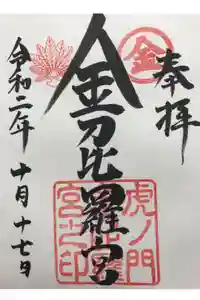 奉拝
金
金刀比羅宮
虎ノ門
宮之印
令和二年
十月十七日